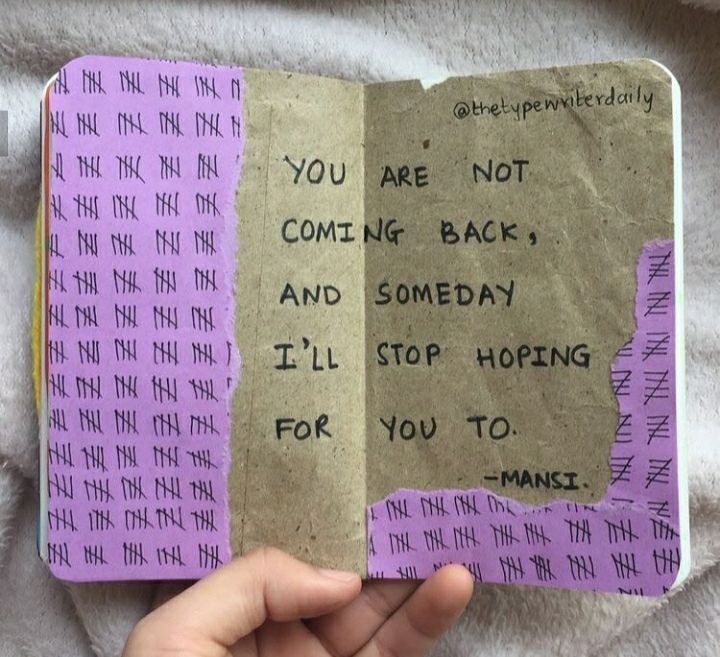 @thetypewriterdaily
YOU ARE NOT
COMING BACK,
AND SOMEDAY
I'LL STOP HOPING
FOR YOU TO.
-MANSI.